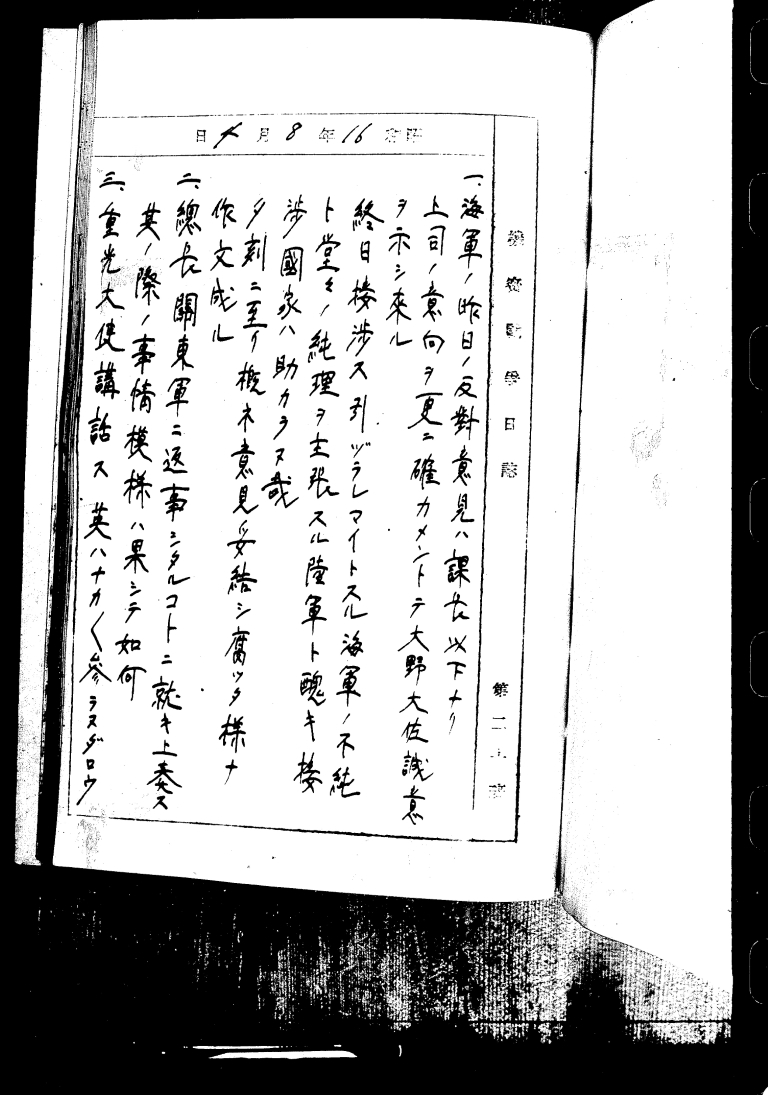 昭和16年8月4日
機密戰爭日誌
第二十班
一、海軍ノ昨日ノ反對意見ハ課長以下ナリ
上司ノ意向ヲ更ニ確カメントテ大野大佐誠意
ヲ示シ來ル
終日接渉ス引ヅラレマイトスル海軍ノ不純
ト堂々ノ純理ヲ主張スル陸軍ト醜キ接
渉國家ハ助カラヌ哉
夕刻ニ至リ概ネ意見妥結シ腐ツタ様ナ
作文成ル
二、總長關東軍ニ返事シタルコトニ就キ上奏ス
其ノ際ノ事情模様ハ果シテ如何
三、重光大使講話ス 英ハナカ〱參ラヌダロウ